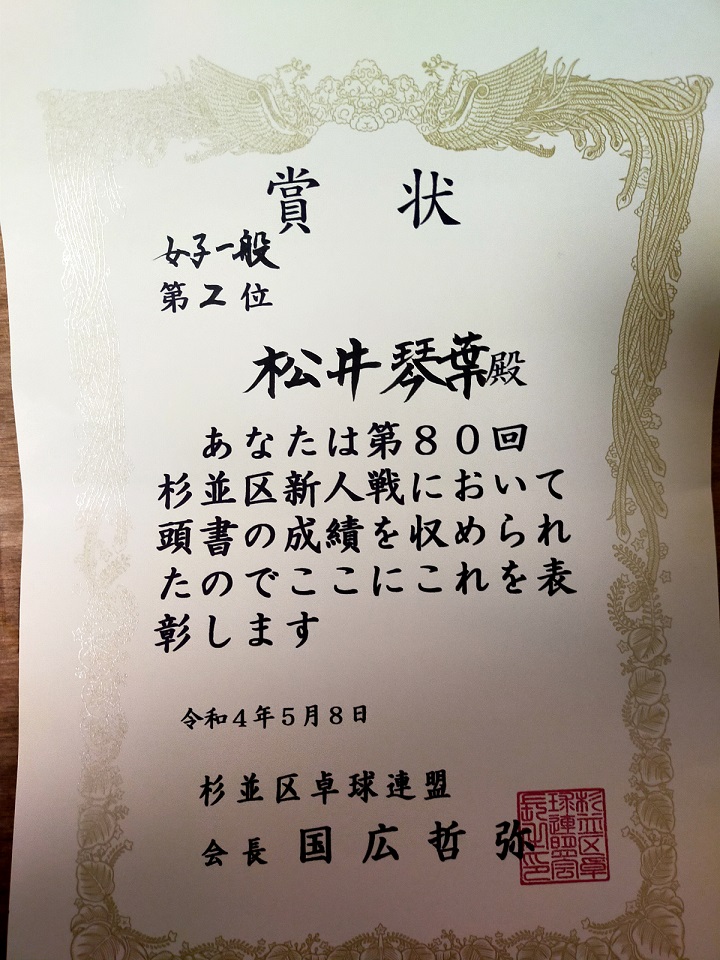 賞状
女子一般
第2位
松井琴葉殿
あなたは第80回
杉並区新人戦において
頭書の成績を収められ
たのでここにこれを表
彰します
令和4年5月8日
杉並区卓球連盟
会長 国広哲弥
杉並区卓
球連盟会
長之印